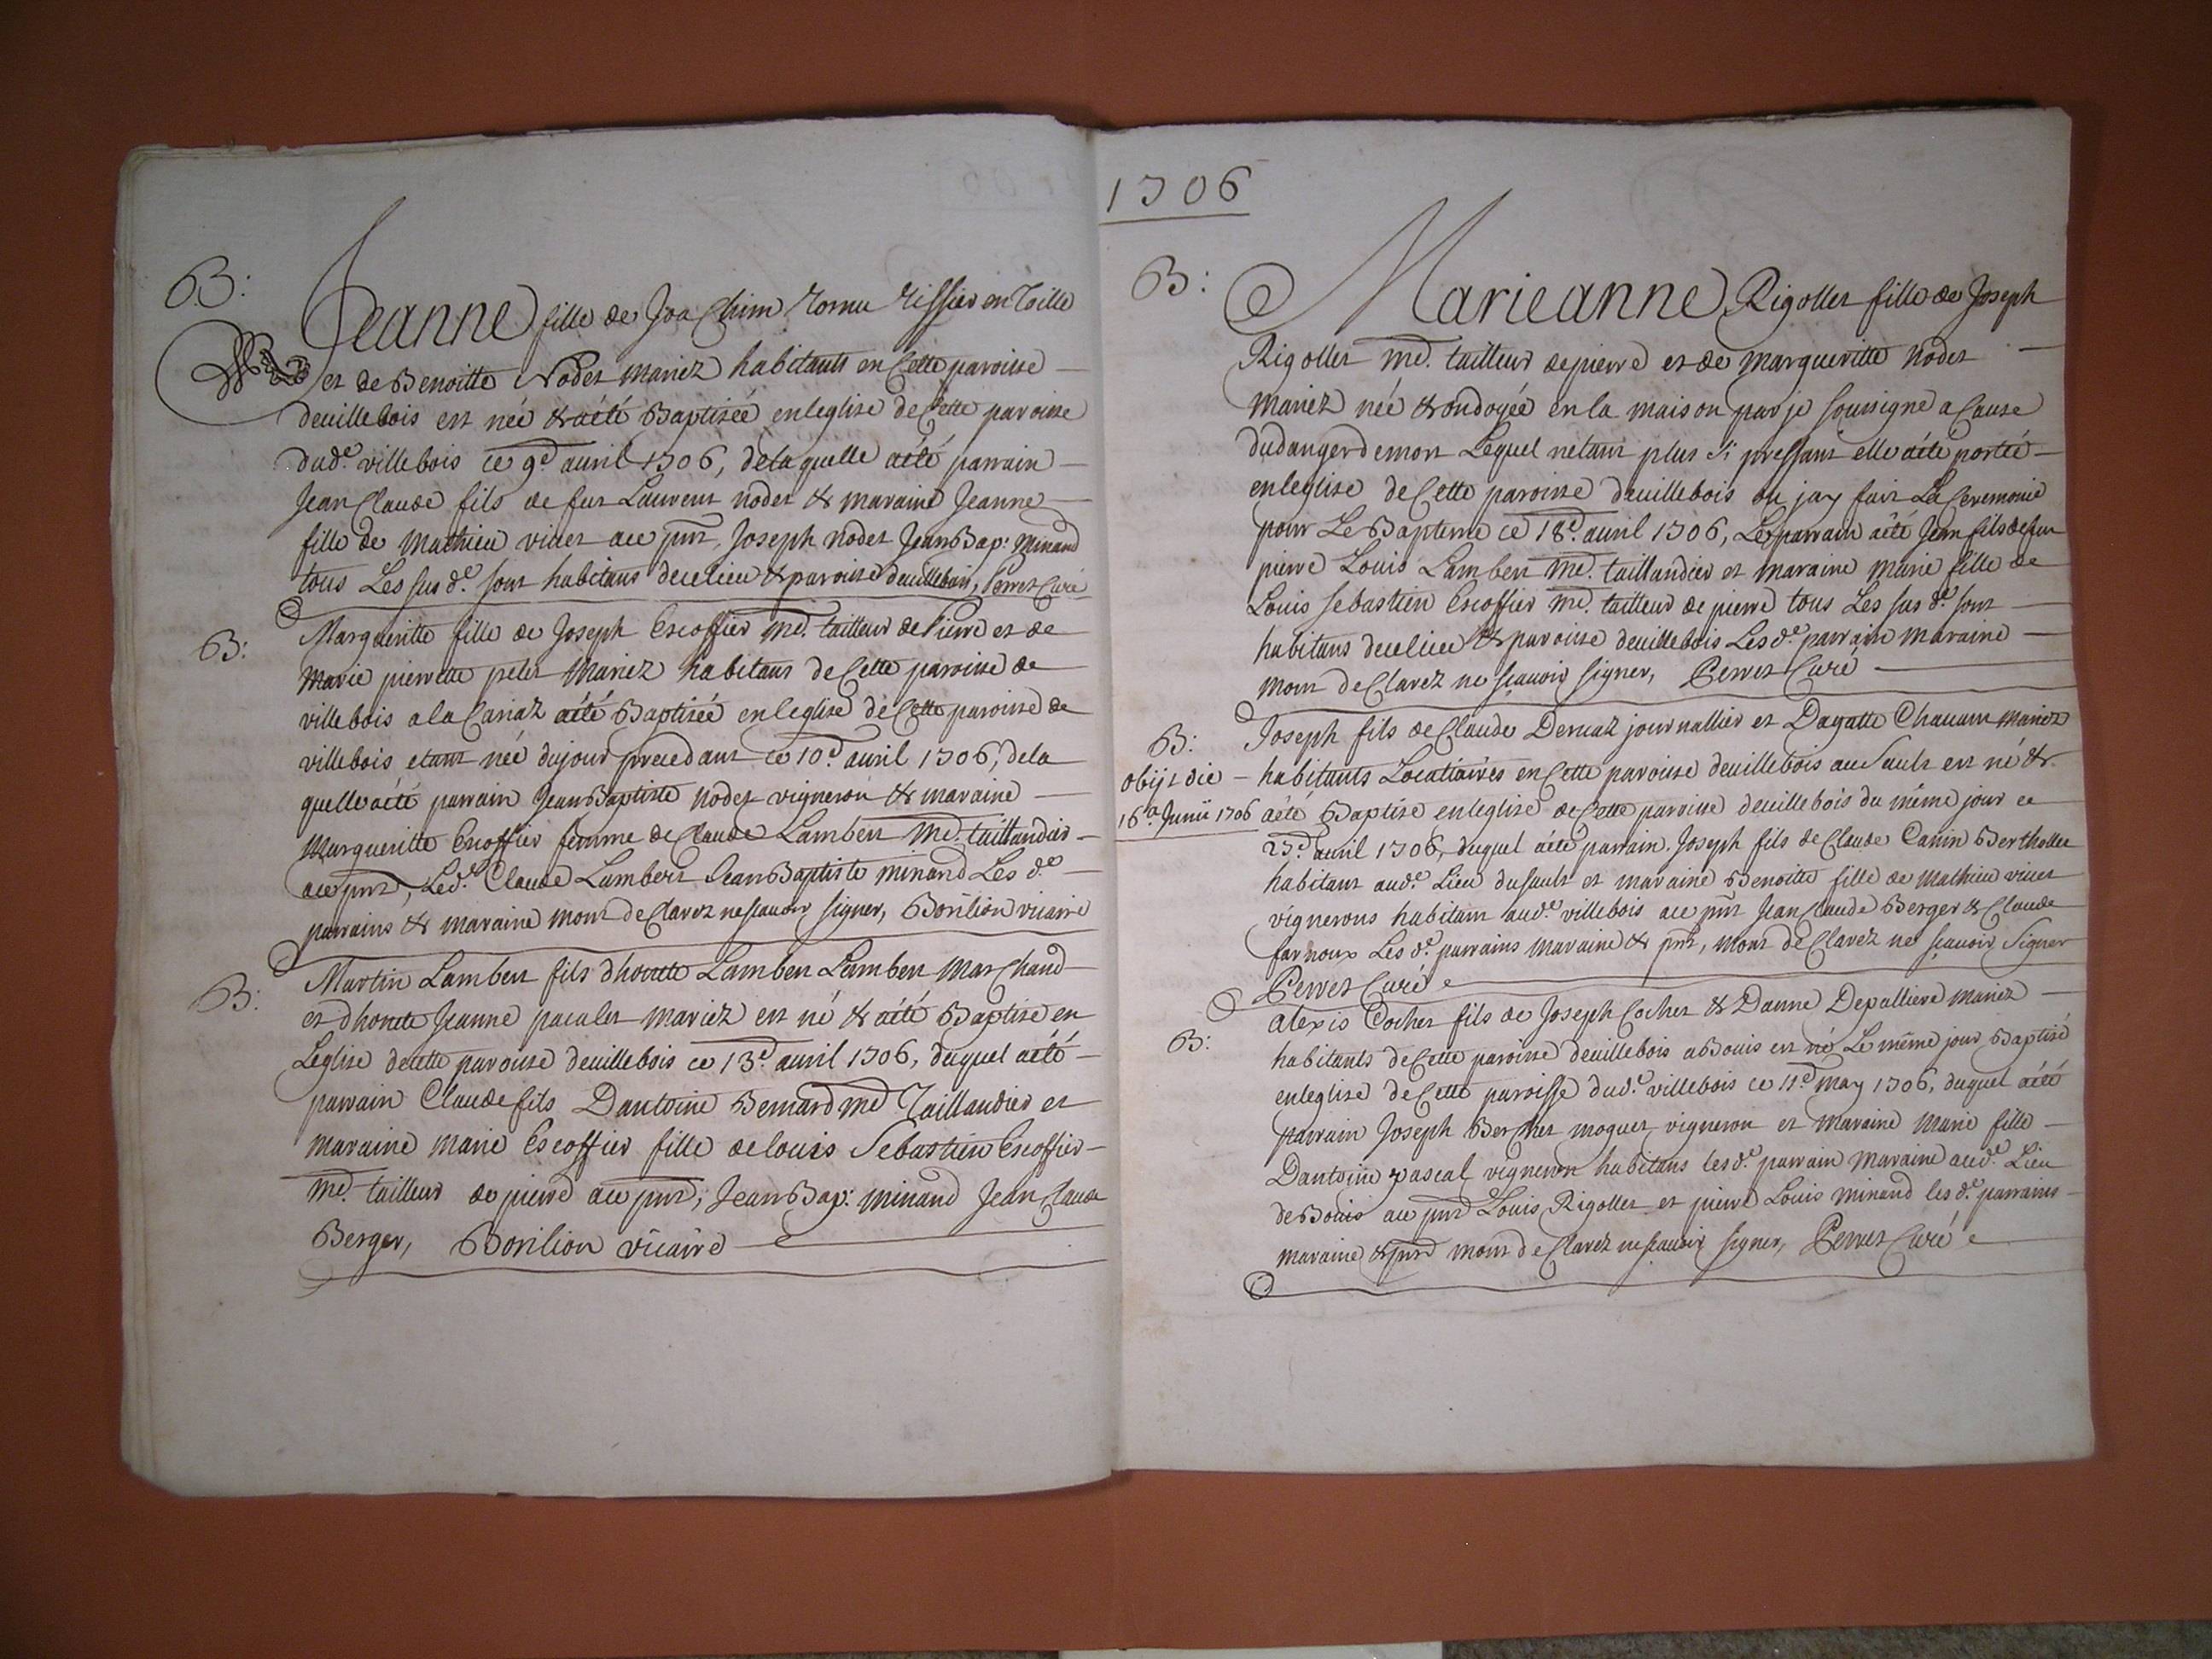 B:
Jeanne fille de JoaChim Tornu Tissier en Toille
et de Benoitte Nodet mariez habitants en Cette paroisse
deuillebois est née & aété Baptisée enleglise de Cette paroisse
dud.e villebois ce 9.e auril 1706, delaquelle aété parrain
Jean Claude fils de fut Laurent nodet & maraine Jeanne
fille de Mathieu viuet ace pnt, Joseph nodet Jean Bap: Minand
tous Les susd.e sont habitans decelieu & paroisse deuillebois, Perret Curé
B:
Margueritte fille de Joseph Escoffier me. tailleur de Pierre et de
Marie pierrette pelet Mariez habitans de Cette paroisse de
villebois a la Cariaz aété Baptisée enleglise de Cette paroisse de
villebois etant née dujour precedant ce 10.e auril 1706, dela
quelle aété parrain Jean Baptiste nodet vigneron & maraine
Margueritte Escoffier femme de Claude Lambert me. taillandier
ace pnt, Led.e Claude Lambert Jean Baptiste minand Les d.e
parrains & maraine mont deClarez nesçauoir signer, Borilion vicaire
B:
Martin Lambert fils dhonete Lambert Lambert MarChand
et dhonete Jeanne pacalet mariez est né & aété Baptisé en
Leglise decette paroisse deuillebois ce 13.e auril 1706, duquel aété
parrain Claude fils Dantoine Bernard me Taillandier et
maraine marie Escoffier fille de louis Sebastien Escoffier
me. tailleur de pierre ace pnt; Jean Bap: minand Jean Claude
Berger, Borilion vicaire
1706
B:
Marieanne Rigollet fille de Joseph
Rigollet me. tailleur depierre et de margueritte nodet
mariez née & ondoyée en la maison par je soussigné a Cause
dudanger demort Lequel netant plus si pressant elle aété portée
enleglise de Cette paroisse deuillebois ou jay fait La Ceremonie
pour Le Bapteme ce 18.e auril 1706, Leparrain aété Jean fils defut
pierre Louis Lambert me. taillandier et maraine marie fille de
Louis sebastien Escoffier me. tailleur de pierre tous Les susd.e sont
habitans decelieu & paroisse deuillebois Les d.e parrain maraine
mont deClarez ne sçauoir signer, Perret Curé
B:
Joseph fils de Claude Deruaz journallier et Dagatte Chauant mariez
obijt die
habitants Locataires en Cette paroisse deuillebois au Sault est né &
16a Junii 1706
aété Baptisé enleglise de Cette paroisse deuillebois du même jour ce
25.e auril 1706, duquel aété parrain Joseph fils de Claude Canin Berthollet
habitant aud.e Lieu dusault et maraine Benoitte fille de Mathieu viuet
vignerons habitant aud.e villebois ace pnt Jean Claude Berger & Claude
farnoux Les d.e parrains maraine & pnt, mont deClarez ne sçauoir Signer
Perret Curé
B:
Alexis Cochet fils de Joseph Cochet & Danne Depalliere mariez
habitants de Cette paroisse deuillebois a Bouis est né Le même jour Baptisé
enleglise de Cette paroisse dud.e villebois ce 11.e may 1706, duquel aété
parrain Joseph Berchet moguet vigneron et maraine marie fille
Dantoine pascal vigneron habitans lesd.e parrain maraine aud.e Lieu
de Bouis ace pnt Louis Rigollet et pierre Louis minand les d.e parrains
maraine & pnt mont deClarez nesçauoir signer, Perret Curé